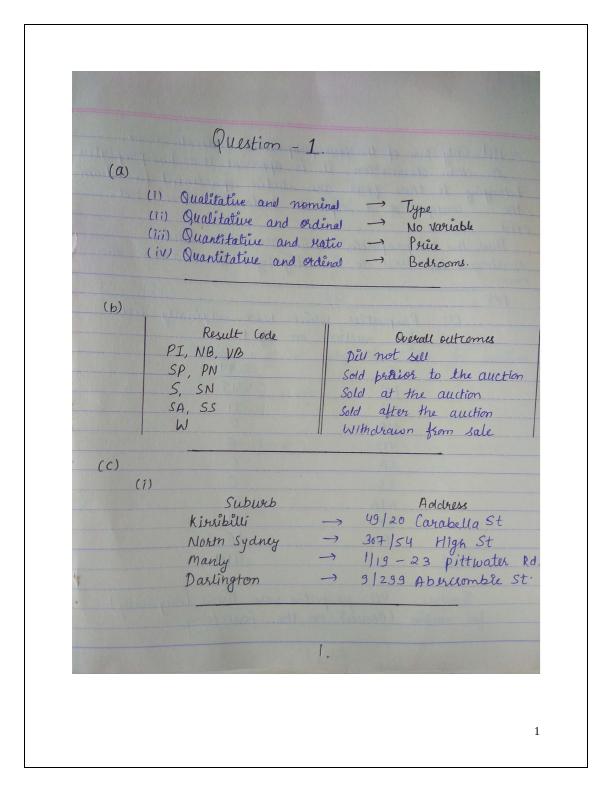 Question - 1.
(a)
(i) Qualitative and nominal → Type
(ii) Qualitative and ordinal → No variable
(iii) Quantitative and ratio → Price
(iv) Quantitative and ordinal → Bedrooms.
(b)
Result Code Overall outcomes
PI, NB, VB Did not sell
SP, PN Sold prior to the auction
S, SN Sold at the auction
SA, SS Sold after the auction
W Withdrawn from sale
(c)
(i)
Suburb Address
Kirribilli → 49/20 Carabella St
North Sydney → 307/54 High St
Manly → 1/19 - 23 Pittwater Rd.
Darlington → 9/299 Abercrombie St.
1.
1